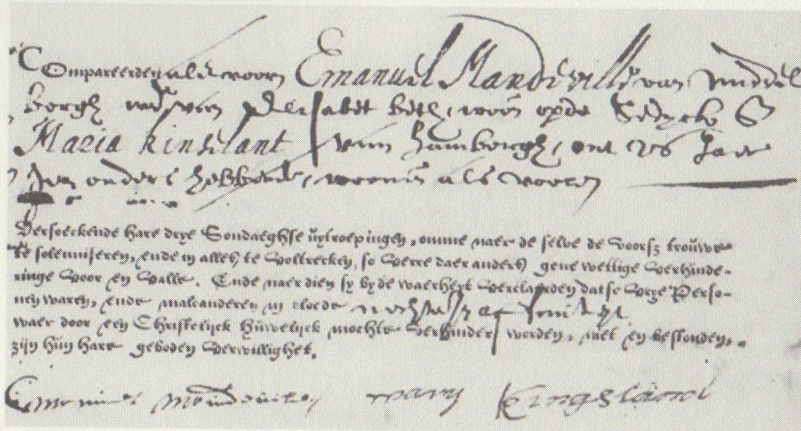 Compareerden als vooren Emanuel Mandeville van Middel
borgh wedr van Elisabet beth, woon opde Sedyck &
Maria kinslant van hamborgh, out 26 Jaer
Gen ouders hebbende, woonen als vooren
Versoeckende hare drye Sondaeghse uytroepingen, omme naer de selve de voorsz trouwe
te solemniseren, ende in alles te voltrecken, so verre daer anders gene wettige verhinde-
ringe voor en valle. Ende naer dien sy by de waerheyt verclaerden datse vrye Perso-
nen waren, ende malcanderen in bloede
waer door een Christelijck huwelijck mochte verhindert worden, niet en bestonden,
zijn hun hare geboden verwillighet.
Mary Kingsland